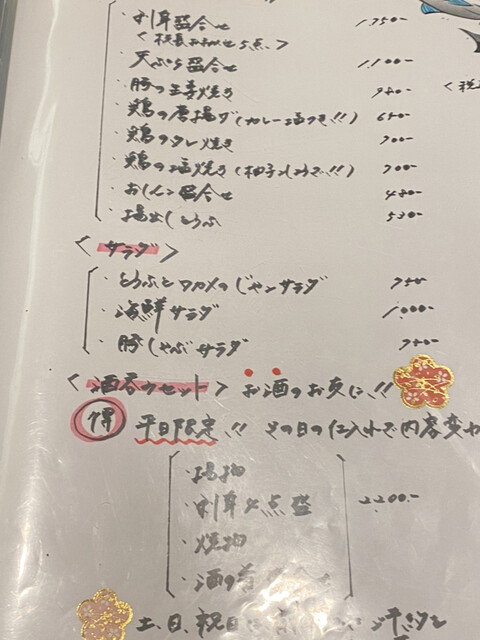 ・刺身盛合せ 1,750-
<板長おまかせ5点>
・天ぷら盛合せ 1,100-
・豚の生姜焼き 780-
・鶏の唐揚げ(カレー塩つき!!) 680-
・鶏のタレ焼き 700-
・鶏の塩焼き(柚子こしょうで!!) 700-
・おしんこ盛合せ 480-
・揚出しとうふ 530-
<サラダ>
・とうふとワカメのじゃこサラダ 750-
・海鮮サラダ 1,000-
・豚しゃぶサラダ 780-
<酒呑みセット> お酒のお友に!!
得 平日限定!! その日の仕入れで内容変わ
・揚物
・刺身〆点盛 2,200-
・焼物
・酒の肴 合せ
土、日、祝日